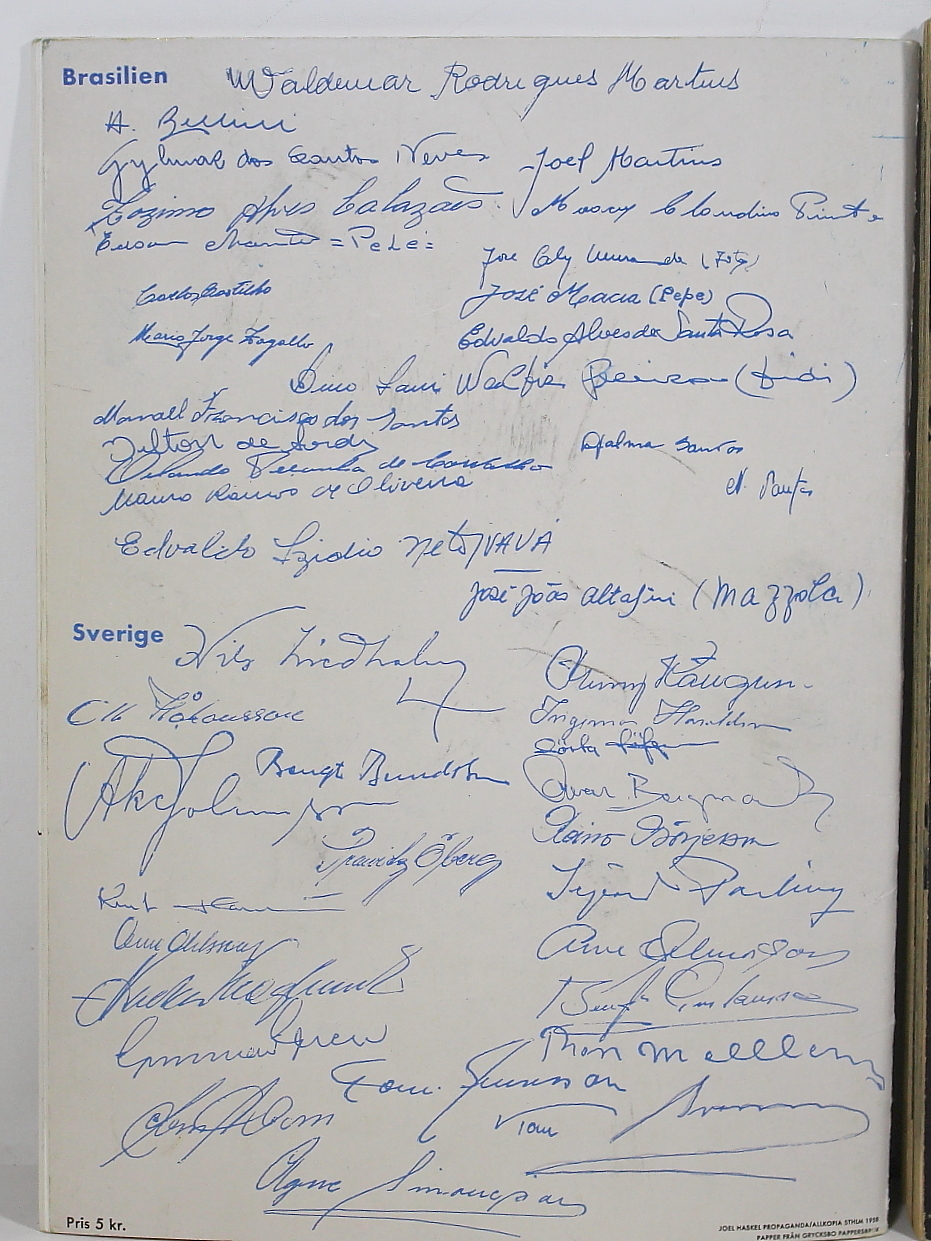 Brasilien
Waldemar Rodrigues Martins
H. Bellini
Gylmar dos Santos Neves
Joel Martins
Zozimo Alves Calazães
Moacyr Claudino Pinto
Edson = Pelé =
José Ely Miranda (Zito)
Carlos Castilho
José Macia (Pepe)
Mario Jorge Zagallo
Edvaldo Alves de Santa Rosa
Dino Sani
Waldir Pereira (Didi)
Manoel Francisco dos Santos
Nilton de Sordi
Djalma Santos
Orlando Peçanha de Carvalho
N. Santos
Mauro Ramos de Oliveira
Edvaldo Izidio Neto VAVÁ
José João Altafini (Mazzola)
Sverige
Nils Liedholm
Ingemar Haraldsson
Gösta Löfgren
Bengt Berndtsson
Åke Johansson
Orvar Bergmark
Reino Börjesson
Prawitz Öberg
Sigvard Parling
Kurt Hamrin
Owe Ohlsson
Arne Selmosson
Bengt Gustavsson
Gunnar Gren
Thore
Agne Simonsson
Pris 5 kr.
JOEL HASKEL PROPAGANDA/ALLKOPIA STHLM 1958
PAPPER FRÅN GRYCKSBO PAPPERSBRUK